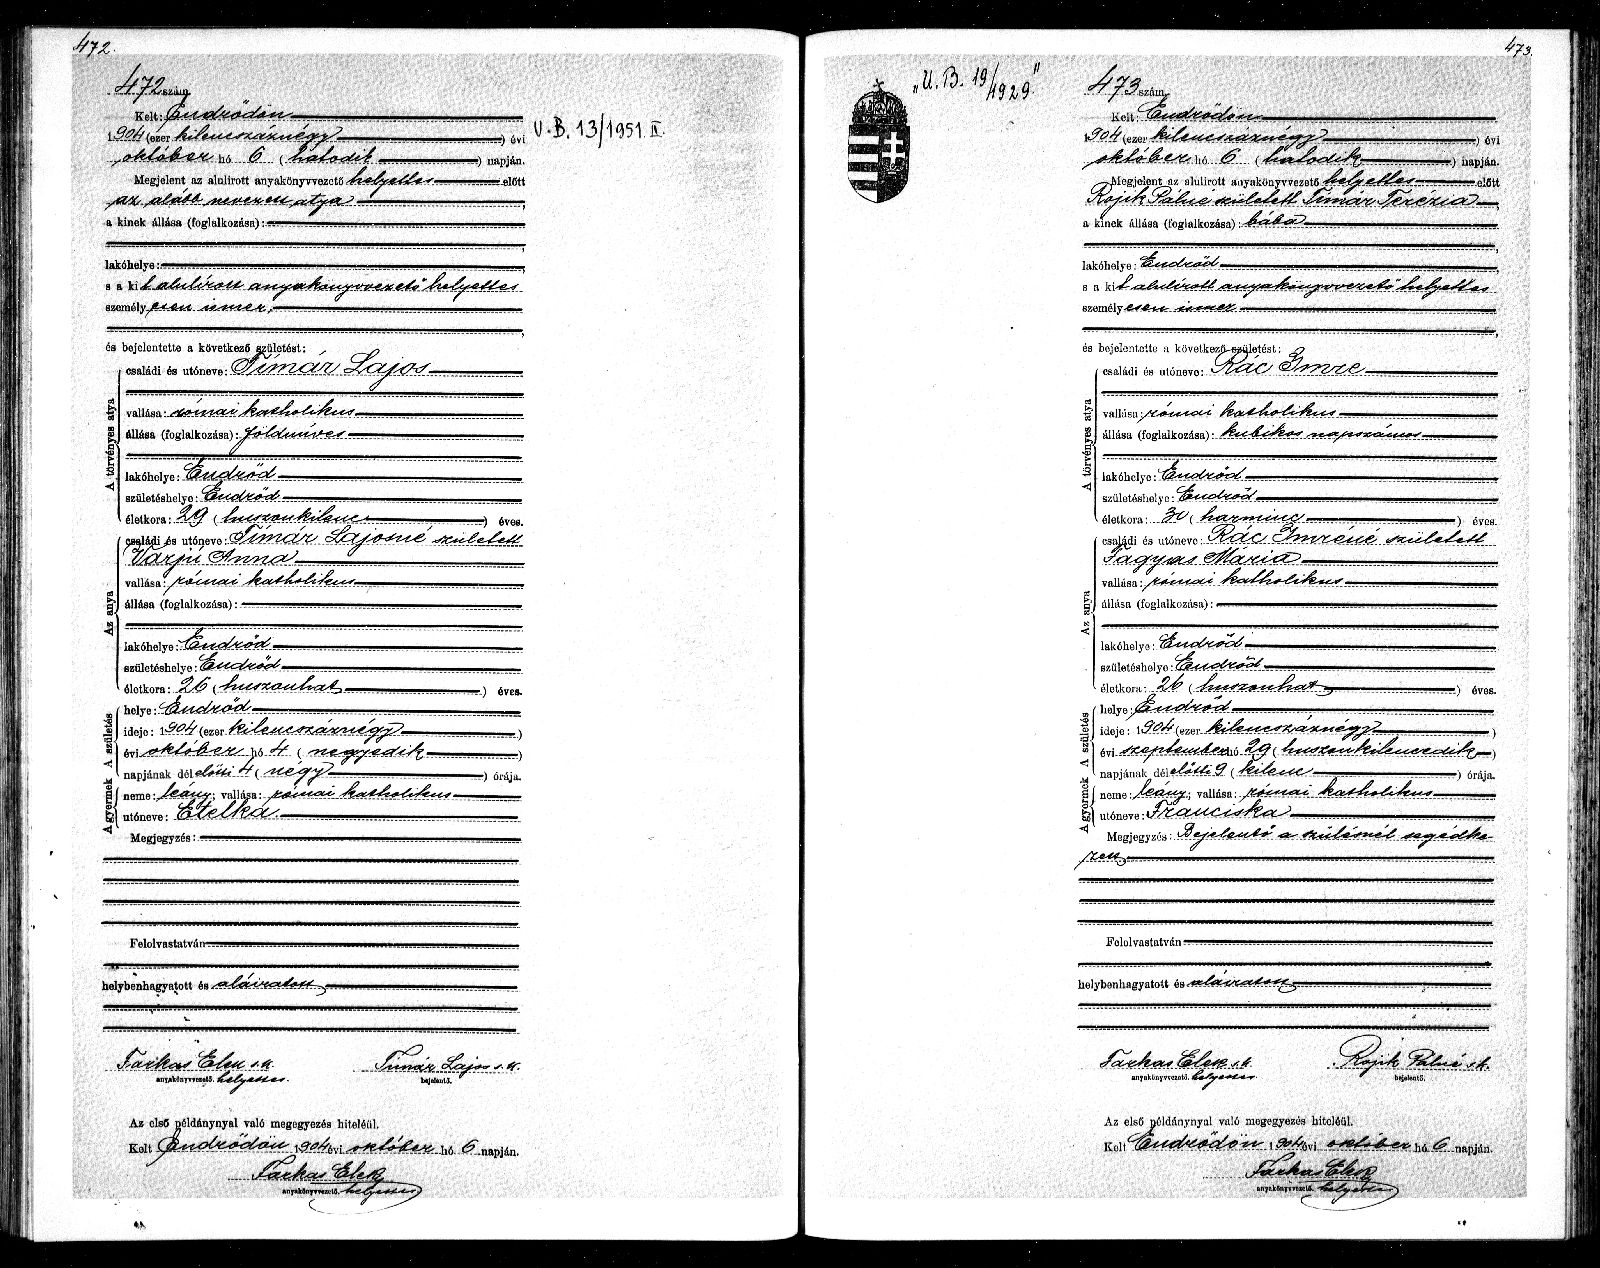 472.
472 szám
Kelt: Endrődön
1904 (ezer kilencszáznégy) évi
október hó 6 (hatodik) napján.
Megjelent az alulirott anyakönyvvezető helyettes előtt
az alább nevezett atya,
a kinek állása (foglalkozása):
lakóhelye:
s a kit alulírott anyakönyvvezető helyettes
személyesen ismer,
és bejelentette a következő születést:
A törvényes atya
családi és utóneve: Tímár Lajos
vallása: római katholikus
állása (foglalkozása): földmüves
lakóhelye: Endrőd
születéshelye: Endrőd
életkora: 29 (huszonkilenc) éves.
Az anya
családi és utóneve: Tímár Lajosné született
Varjú Anna
vallása: római katholikus
állása (foglalkozása):
lakóhelye: Endrőd
születéshelye: Endrőd
életkora: 26 (huszonhat) éves.
A születés
helye: Endrőd
ideje: 1904 (ezer kilencszáznégy)
évi október hó 4 (negyedik)
napjának délelőtti 4 (négy) órája.
A gyermek
neme: leány; vallása: római katholikus
utóneve: Etelka.
Megjegyzés:
Felolvastatván
helybenhagyatott és aláiratott
Farkas Elek s.k. Tímár Lajos s.k.
anyakönyvvezető. helyettes. bejelentő.
Az első példánynyal való megegyezés hiteléül.
Kelt Endrődön 1904 évi október hó 6 napján.
Farkas Elek
anyakönyvvezető. helyettes
U.B. 13/1951. II.
473.
„U.B. 19/1929"
473 szám
Kelt: Endrődön
1904 (ezer kilencszáznégy) évi
október hó 6 (hatodik) napján.
Megjelent az alulirott anyakönyvvezető helyettes előtt
Rojik Pálné született Tímár Terézia,
a kinek állása (foglalkozása): bába
lakóhelye: Endrőd
s a kit alulírott anyakönyvvezető helyettes
személyesen ismer
és bejelentette a következő születést:
A törvényes atya
családi és utóneve: Rác Imre
vallása: római katholikus
állása (foglalkozása): kubikos napszámos
lakóhelye: Endrőd
születéshelye: Endrőd
életkora: 30 (harminc) éves.
Az anya
családi és utóneve: Rác Imréné született
Fagyas Mária
vallása: római katholikus
állása (foglalkozása):
lakóhelye: Endrőd
születéshelye: Endrőd
életkora: 26 (huszonhat) éves.
A születés
helye: Endrőd
ideje: 1904 (ezer kilencszáznégy)
évi szeptember hó 29 (huszonkilencedik)
napjának délelőtti 9 (kilenc) órája.
A gyermek
neme: leány; vallása: római katholikus
utóneve: Franciska
Megjegyzés: Bejelentő a szülésnél segédke
zett
Felolvastatván
helybenhagyatott és aláiratott
Farkas Elek s.k. Rojik Pálné s.k.
anyakönyvvezető. helyettes bejelentő.
Az első példánynyal való megegyezés hiteléül.
Kelt Endrődön 1904 évi október hó 6 napján.
Farkas Elek
anyakönyvvezető. helyettes